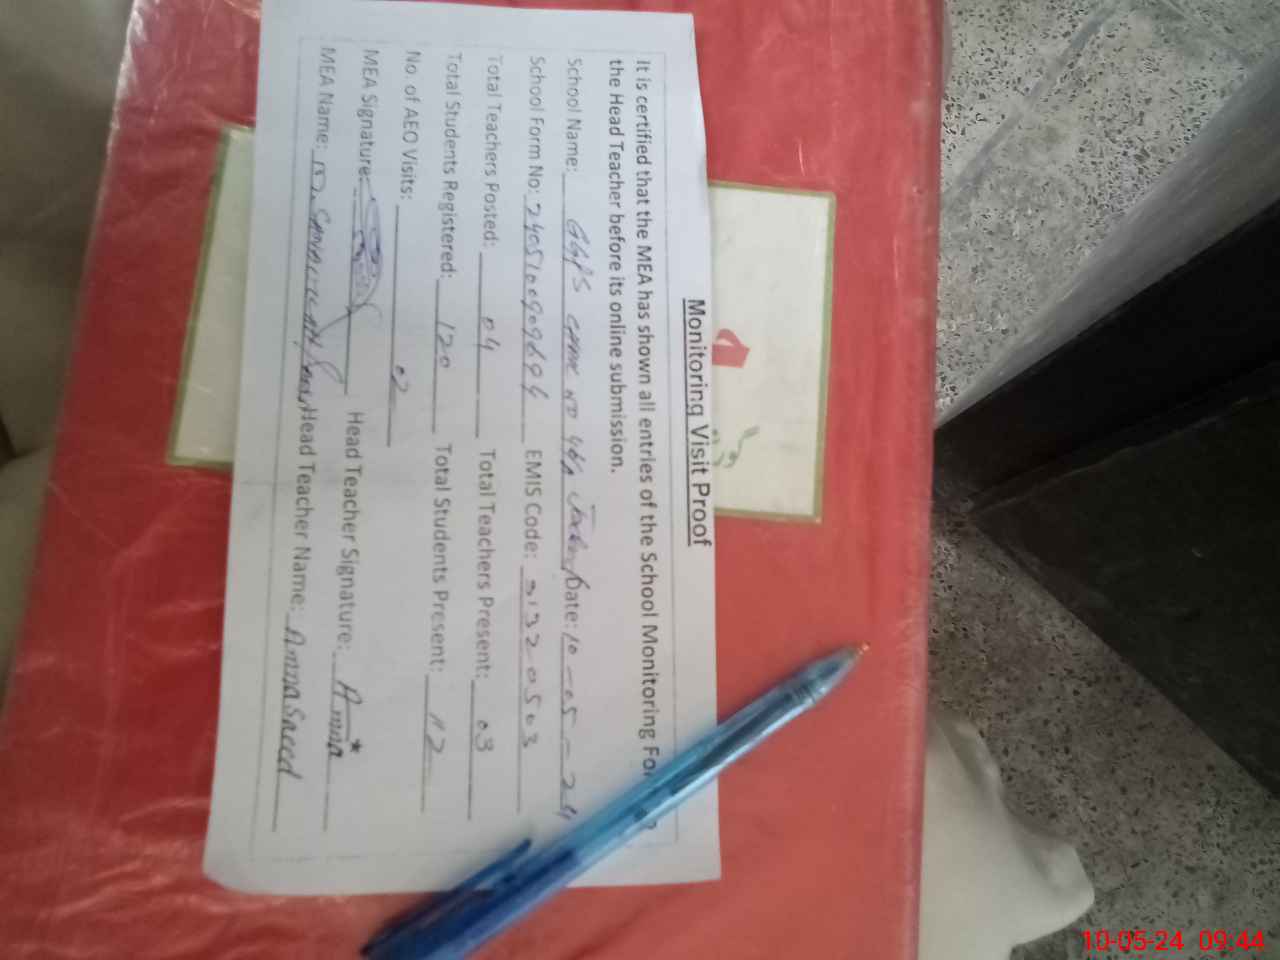 Monitoring Visit Proof
It is certified that the MEA has shown all entries of the School Monitoring For
the Head Teacher before its online submission.
School Name: GGPS Date: 10-05-24
School Form No: EMIS Code: 31320503
Total Teachers Posted: 04 Total Teachers Present: 03
Total Students Registered: 120 Total Students Present: 112
No. of AEO Visits: 02
MEA Signature: Head Teacher Signature: Amna
MEA Name: Head Teacher Name: Amna Saeed
10-05-24 09:44